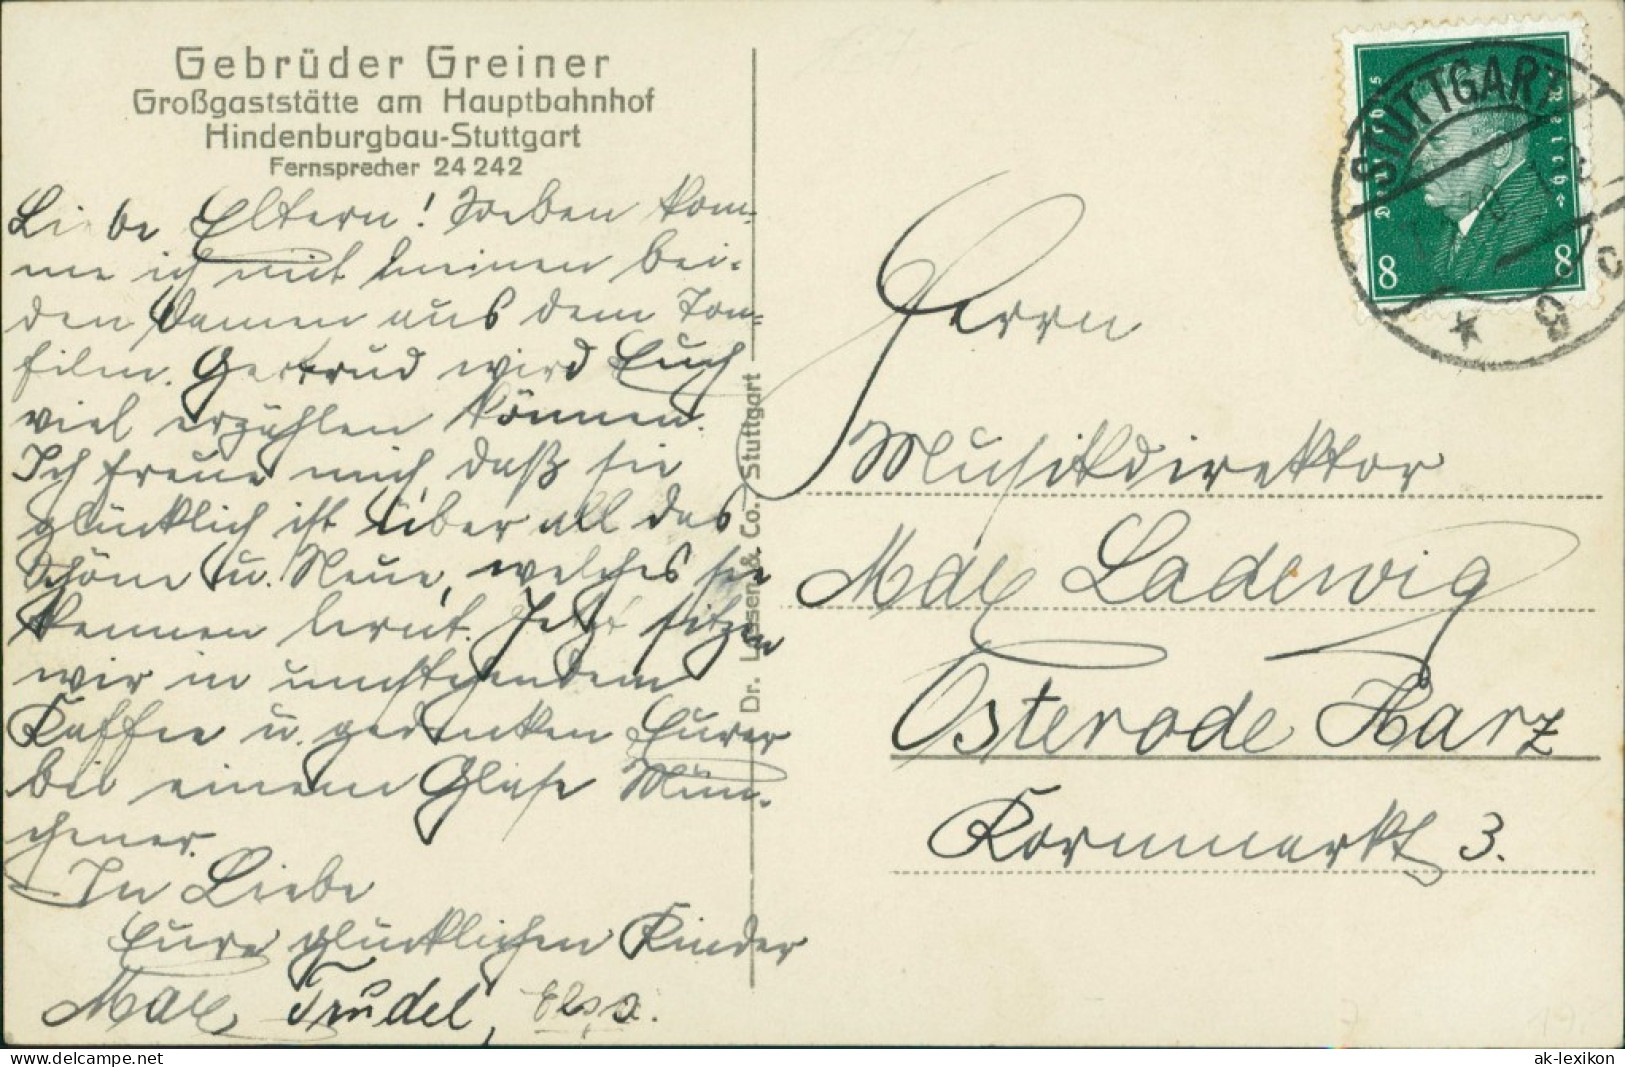 Gebrüder Greiner
Großgaststätte am Hauptbahnhof
Hindenburgbau-Stuttgart
Fernsprecher 24 242
Liebe Eltern! Soeben kom-
me ich mit meinen bei-
den Damen aus dem Ton-
film. Gertrud wird Euch
viel erzählen können.
Ich freue mich, daß sie
glücklich ist über all das
Schöne u. Neue, welches sie
kennen lernt. Jetzt sitzen
wir in
Kaffee u. gedenken Eurer
bei einem Glase Mün-
chener.
In Liebe
Eure glücklichen Kinder
Max, Trudel, Elsa.
Dr. & Co. Stuttgart
Deutsches Reich
8 8
STUTTGART
Herrn
Musikdirektor
Max Ladewig
Osterode Harz
Kornmarkt 3.
ak-lexikon
© the-best-place.com